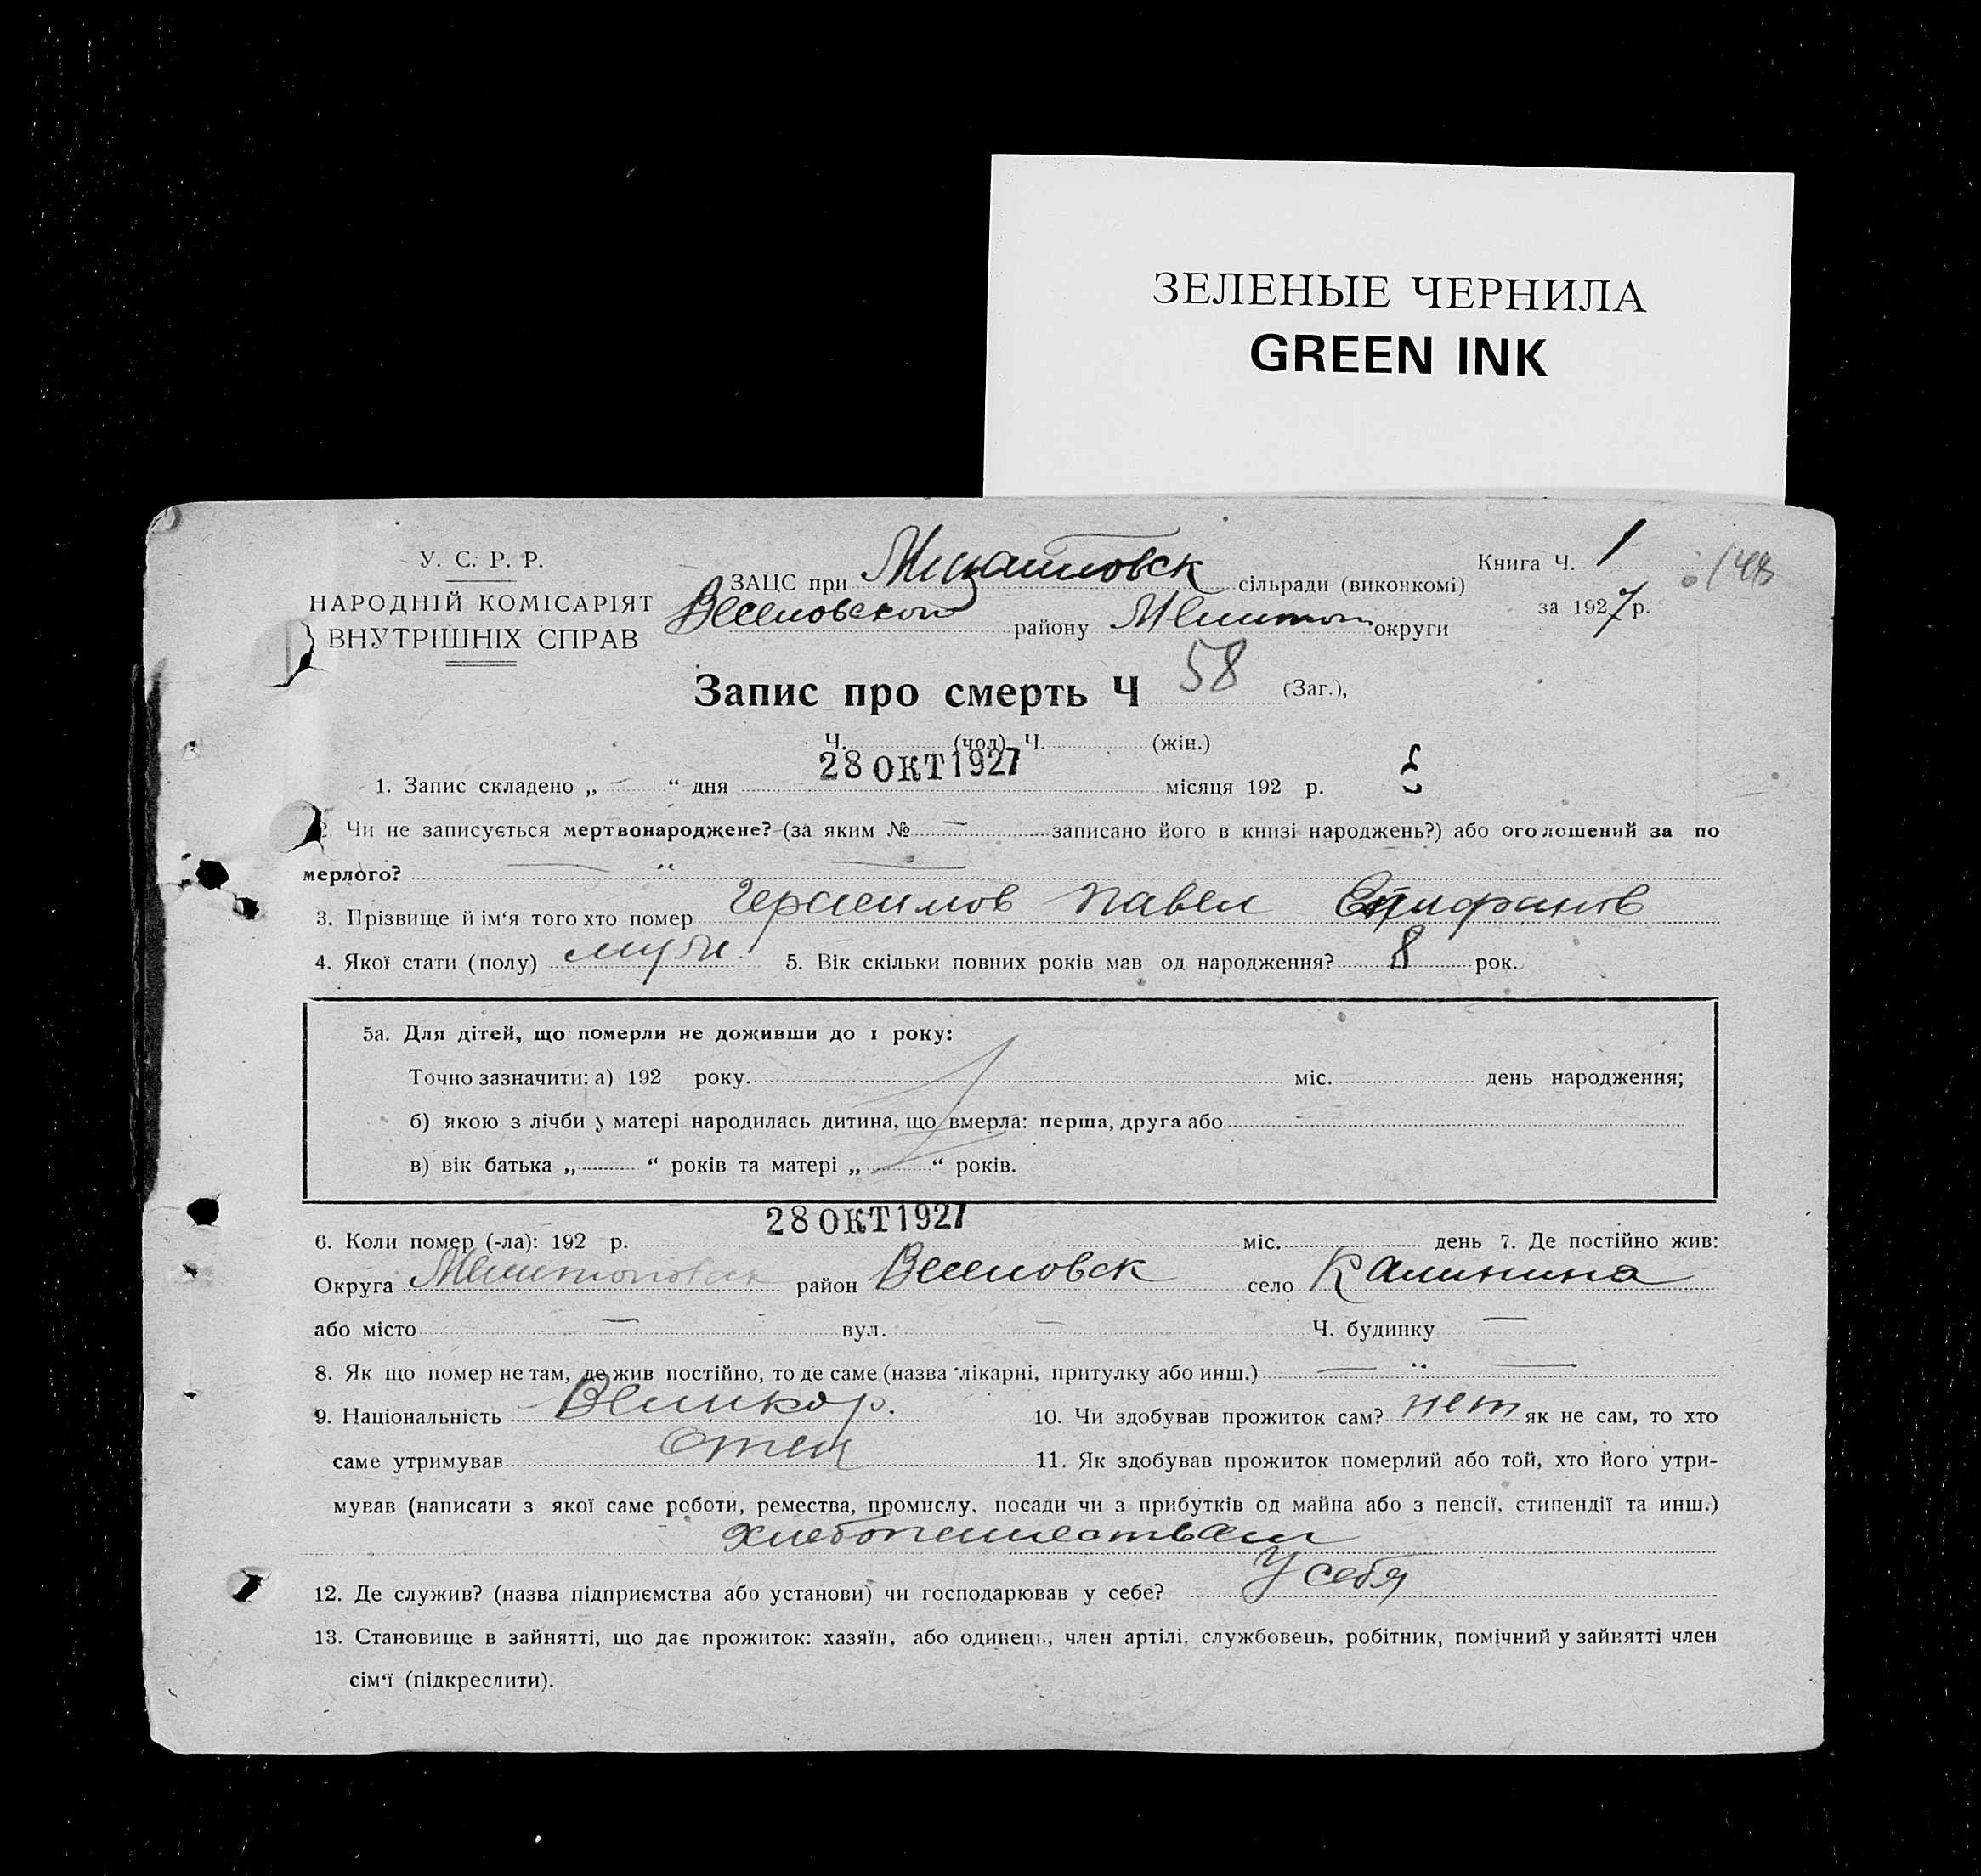 ЗЕЛЕНЫЕ ЧЕРНИЛА
GREEN INK
У. С. Р. Р.
НАРОДНІЙ КОМІСАРІЯТ
ВНУТРІШНІХ СПРАВ
ЗАЦС при сільради (виконкомі)
Веселовской району Мелитоп округи
Книга Ч. 1
за 1927 р.
148
Запис про смерть Ч 58 (Заг.),
Ч. (чол) Ч. (жін.)
1. Запис складено „ — “ дня 28 ОКТ 1927 місяця 192 р.
2. Чи не записується мертвонароджене? (за яким № — записано його в книзі народжень?) або оголошений за по
мерлого? — “ —
3. Прізвище й ім'я того хто помер Герасимов Павел Епифанов
4. Якої стати (полу) муж. 5. Вік скільки повних років мав од народження? 8 рок.
5а. Для дітей, що померли не доживши до 1 року:
Точно зазначити: а) 192 року. міс. день народження;
б) якою з лічби у матері народилась дитина, що вмерла: перша, друга або
в) вік батька „ “ років та матері „ “ років.
6. Коли помер (-ла): 192 р. 28 ОКТ 1927 міс. день 7. Де постійно жив:
Округа Мелитопольск район Веселовск село Калинина
або місто — вул. — Ч. будинку —
8. Як що помер не там, де жив постійно, то де саме (назва лікарні, притулку або инш.) — “ —
9. Національність Великор. 10. Чи здобував прожиток сам? нет як не сам, то хто
саме утримував Отец 11. Як здобував прожиток померлий або той, хто його утри-
мував (написати з якої саме роботи, ремества, промислу, посади чи з прибутків од майна або з пенсії, стипендії та инш.)
хлебопашеством
12. Де служив? (назва підприємства або установи) чи господарював у себе? У себя
13. Становище в зайнятті, що дає прожиток: хазяїн, або одинець, член артілі, службовець, робітник, помічний у зайнятті член
сім'ї (підкреслити).